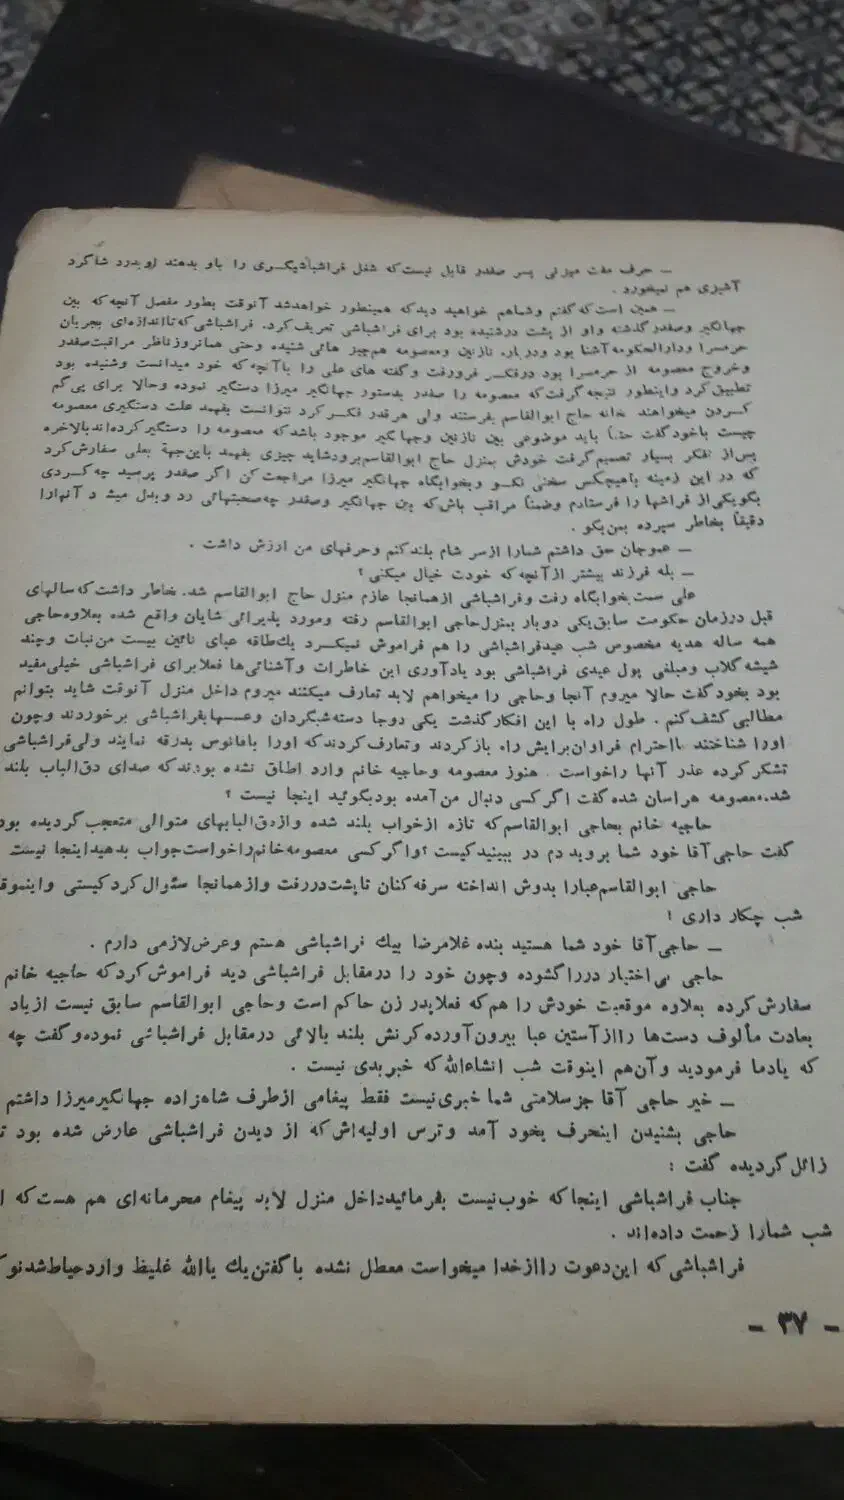 ـ حرف مفت میزنی پسر صفدر قابل نیست که شغل فراشباشیگری را باو بدهند اوبدرد شاگرد
آشپزی هم نمیخورد .
ـ همین است که گفتم وشماهم خواهید دید که همینطور خواهدشد آنوقت بطور مفصل آنچه که بین
جهانگیر وصفدر گذشته واو از پشت در شنیده بود برای فراشباشی تعریف کرد. فراشباشی که تااندازه‌ای بجریان
حرمسرا ودارالحکومه آشنا بود ودرباره نازنین ومعصومه هم چیز هائی شنیده وحتی همانروز ناظر مراقبت صفدر
وخروج معصومه از حرمسرا بود در فکر فرورفت وگفته های علی را باآنچه که خود میدانست وشنیده بود
تطبیق کرد واینطور نتیجه گرفت که معصومه را صفدر بدستور جهانگیر میرزا دستگیر نموده وحالا برای پی گم
کردن میخواهند خانه حاج ابوالقاسم بفرستند ولی هر قدر فکر کرد نتوانست بفهمد علت دستگیری معصومه
چیست باخود گفت حتماً باید موضوعی بین نازنین وجهانگیر موجود باشد که معصومه را دستگیر کرده‌اند بالاخره
پس از تفکر بسیار تصمیم گرفت خودش بمنزل حاج ابوالقاسم برود شاید چیزی بفهمد باین جهة بعلی سفارش کرد
که در این زمینه باهیچکس سخنی نگو وبخوابگاه جهانگیر میرزا مراجعت کن اگر صفدر پرسید چه کردی
بگو یکی از فراشها را فرستادم وضمناً مراقب باش که بین جهانگیر وصفدر چه صحبتهائی رد وبدل میشود آنهارا
دقیقاً بخاطر سپرده بمن بگو .
ـ عموجان حق داشتم شمارا از سر شام بلند کنم وحرفهای من ارزش داشت .
ـ بله فرزند بیشتر از آنچه که خودت خیال میکنی ؟
علی سمت خوابگاه رفت وفراشباشی از همانجا عازم منزل حاج ابوالقاسم شد. خاطر داشت که سالهای
قبل درزمان حکومت سابق یکی دوبار بمنزل حاجی ابوالقاسم رفته ومورد پذیرائی شایان واقع شده بعلاوه حاجی
همه ساله هدیه مخصوص شب عید فراشباشی را هم فراموش نمیکرد یك طاقه عبای نائین بیست من نبات وچند
شیشه گلاب ومبلغی پول عیدی فراشباشی بود یادآوری این خاطرات وآشنائی ها فعلا برای فراشباشی خیلی مفید
بود بخود گفت حالا میروم آنجا وحاجی را میخواهم لابد تعارف میکنند میروم داخل منزل آنوقت شاید بتوانم
مطالبی کشف کنم . طول راه با این افکار گذشت یکی دوجا دسته شبگردان وعسسها بفراشباشی برخوردند وچون
اورا شناختند بااحترام فراوان برایش راه باز کردند وتعارف کردند که اورا بافانوس بدرقه نمایند ولی فراشباشی
تشکر کرده عذر آنها راخواست هنوز معصومه وحاجیه خانم وارد اطاق نشده بودند که صدای دق الباب بلند
شد. معصومه هراسان شده گفت اگر کسی دنبال من آمده بود بگوئید اینجا نیست ؟
حاجیه خانم بحاجی ابوالقاسم که تازه ازخواب بلند شده وازدق البابهای متوالی متعجب گردیده بود
گفت حاجی آقا خود شما بروید دم در ببینید کیست ؟ واگر کسی معصومه خانم راخواست جواب بدهید اینجا نیست
حاجی ابوالقاسم عبارا بدوش انداخته سرفه کنان تاپشت دررفت وازهمانجا سئوال کرد کیستی واینموقع
شب چکار داری !
ـ حاجی آقا خود شما هستید بنده غلامرضا بیك فراشباشی هستم وعرض لازمی دارم .
حاجی بی اختیار دررا گشوده وچون خود را درمقابل فراشباشی دید فراموش کرد که حاجیه خانم
سفارش کرده بعلاوه موقعیت خودش را هم که فعلا پدر زن حاکم است وحاجی ابوالقاسم سابق نیست ازیاد
بعادت مألوف دست‌ها رااز آستین عبا بیرون آورده کرنش بلند بالائی درمقابل فراشباشی نموده وگفت چه
که یادما فرمودید وآن هم اینوقت شب انشاءالله که خبر بدی نیست .
ـ خیر حاجی آقا جز سلامتی شما خبری نیست فقط پیغامی ازطرف شاهزاده جهانگیر میرزا داشتم
حاجی بشنیدن اینحرف بخود آمد وترس اولیه‌اش که از دیدن فراشباشی عارض شده بود
زائل گردیده گفت :
جناب فراشباشی اینجا که خوب نیست بفرمائید داخل منزل لابد پیغام محرمانه‌ای هم هست که
شب شمارا زحمت داده‌اند .
فراشباشی که این دعوت رااز خدا میخواست معطل نشده باگفتن یك یاالله غلیظ وارد حیاط شد
- ۳۷ -